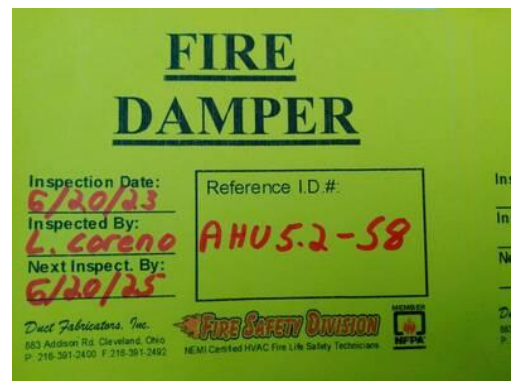 FIRE
DAMPER
Inspection Date:
6/20/23
Inspected By:
L. Coreno
Next Inspect. By:
6/20/25
Reference I.D.#:
AHU5.2-58
Duct Fabricators, Inc.
883 Addison Rd. Cleveland, Ohio
P: 216-391-2400 F:216-391-2492
FIRE SAFETY DIVISION
NEMI Certified HVAC Fire Life Safety Technicians
MEMBER
NFPA